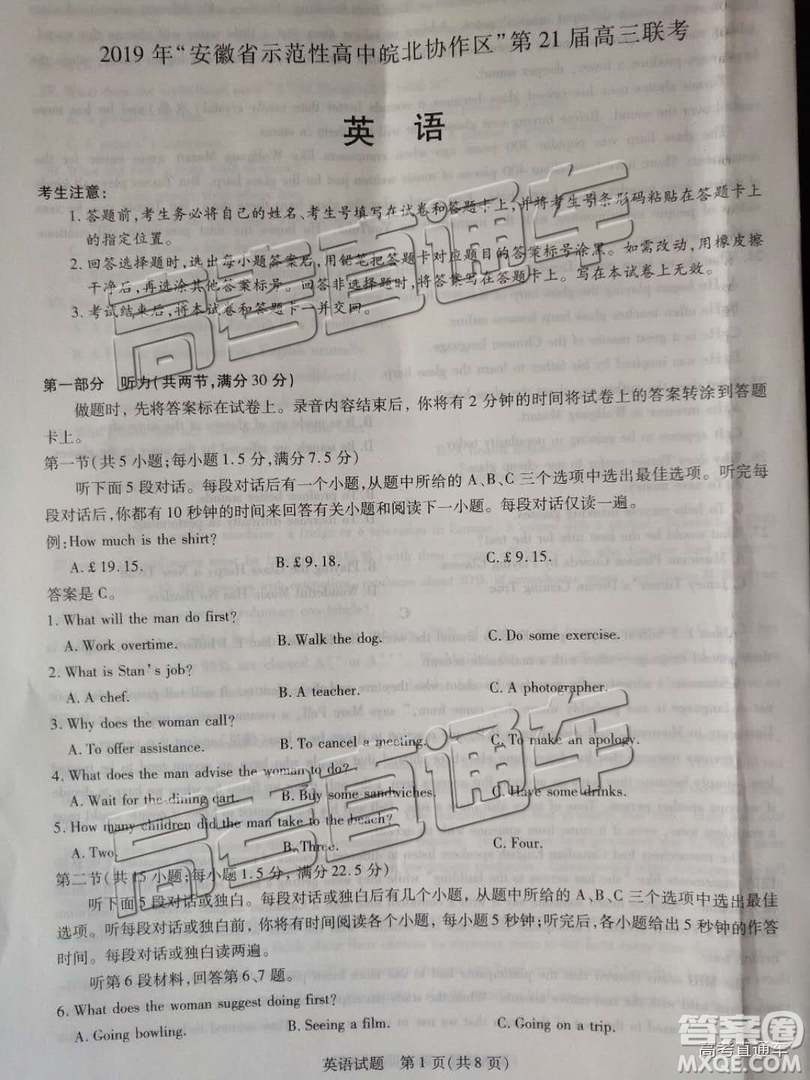 2019 年“安徽省示范性高中皖北协作区”第 21 届高三联考
英 语
考生注意:
1. 答题前,考生务必将自己的姓名、考生号填写在试卷和答题卡上,并将考生号条形码粘贴在答题卡上
的指定位置。
2. 回答选择题时,选出每小题答案后,用铅笔把答题卡对应题目的答案标号涂黑。如需改动,用橡皮擦
干净后,再选涂其他答案标号。回答非选择题时,将答案写在答题卡上。写在本试卷上无效。
3. 考试结束后,将本试卷和答题卡一并交回。
第一部分 听力(共两节,满分 30 分)
做题时,先将答案标在试卷上。录音内容结束后,你将有 2 分钟的时间将试卷上的答案转涂到答题
卡上。
第一节(共 5 小题;每小题 1.5 分,满分 7.5 分)
听下面 5 段对话。每段对话后有一个小题,从题中所给的 A、B、C 三个选项中选出最佳选项。听完每
段对话后,你都有 10 秒钟的时间来回答有关小题和阅读下一小题。每段对话仅读一遍。
例:How much is the shirt?
A. £ 19.15. B. £ 9.18. C. £ 9.15.
答案是 C。
1. What will the man do first?
A. Work overtime. B. Walk the dog. C. Do some exercise.
2. What is Stan's job?
A. A chef. B. A teacher. C. A photographer.
3. Why does the woman call?
A. To offer assistance. B. To cancel a meeting. C. To make an apology.
4. What does the man advise the woman to do?
A. Wait for the dining cart. B. Buy some sandwiches. C. Have some drinks.
5. How many children did the man take to the beach?
A. Two. B. Three. C. Four.
第二节(共 15 小题;每小题 1.5 分,满分 22.5 分)
听下面 5 段对话或独白。每段对话或独白后有几个小题,从题中所给的 A、B、C 三个选项中选出最佳
选项。听每段对话或独白前,你将有时间阅读各个小题,每小题 5 秒钟;听完后,各小题给出 5 秒钟的作答
时间。每段对话或独白读两遍。
听第 6 段材料,回答第 6、7 题。
6. What does the woman suggest doing first?
A. Going bowling. B. Seeing a film. C. Going on a trip.
英语试题 第 1 页(共 8 页)
高考直通车
高考直通车
答案圈
高考直通车
MXQE.COM